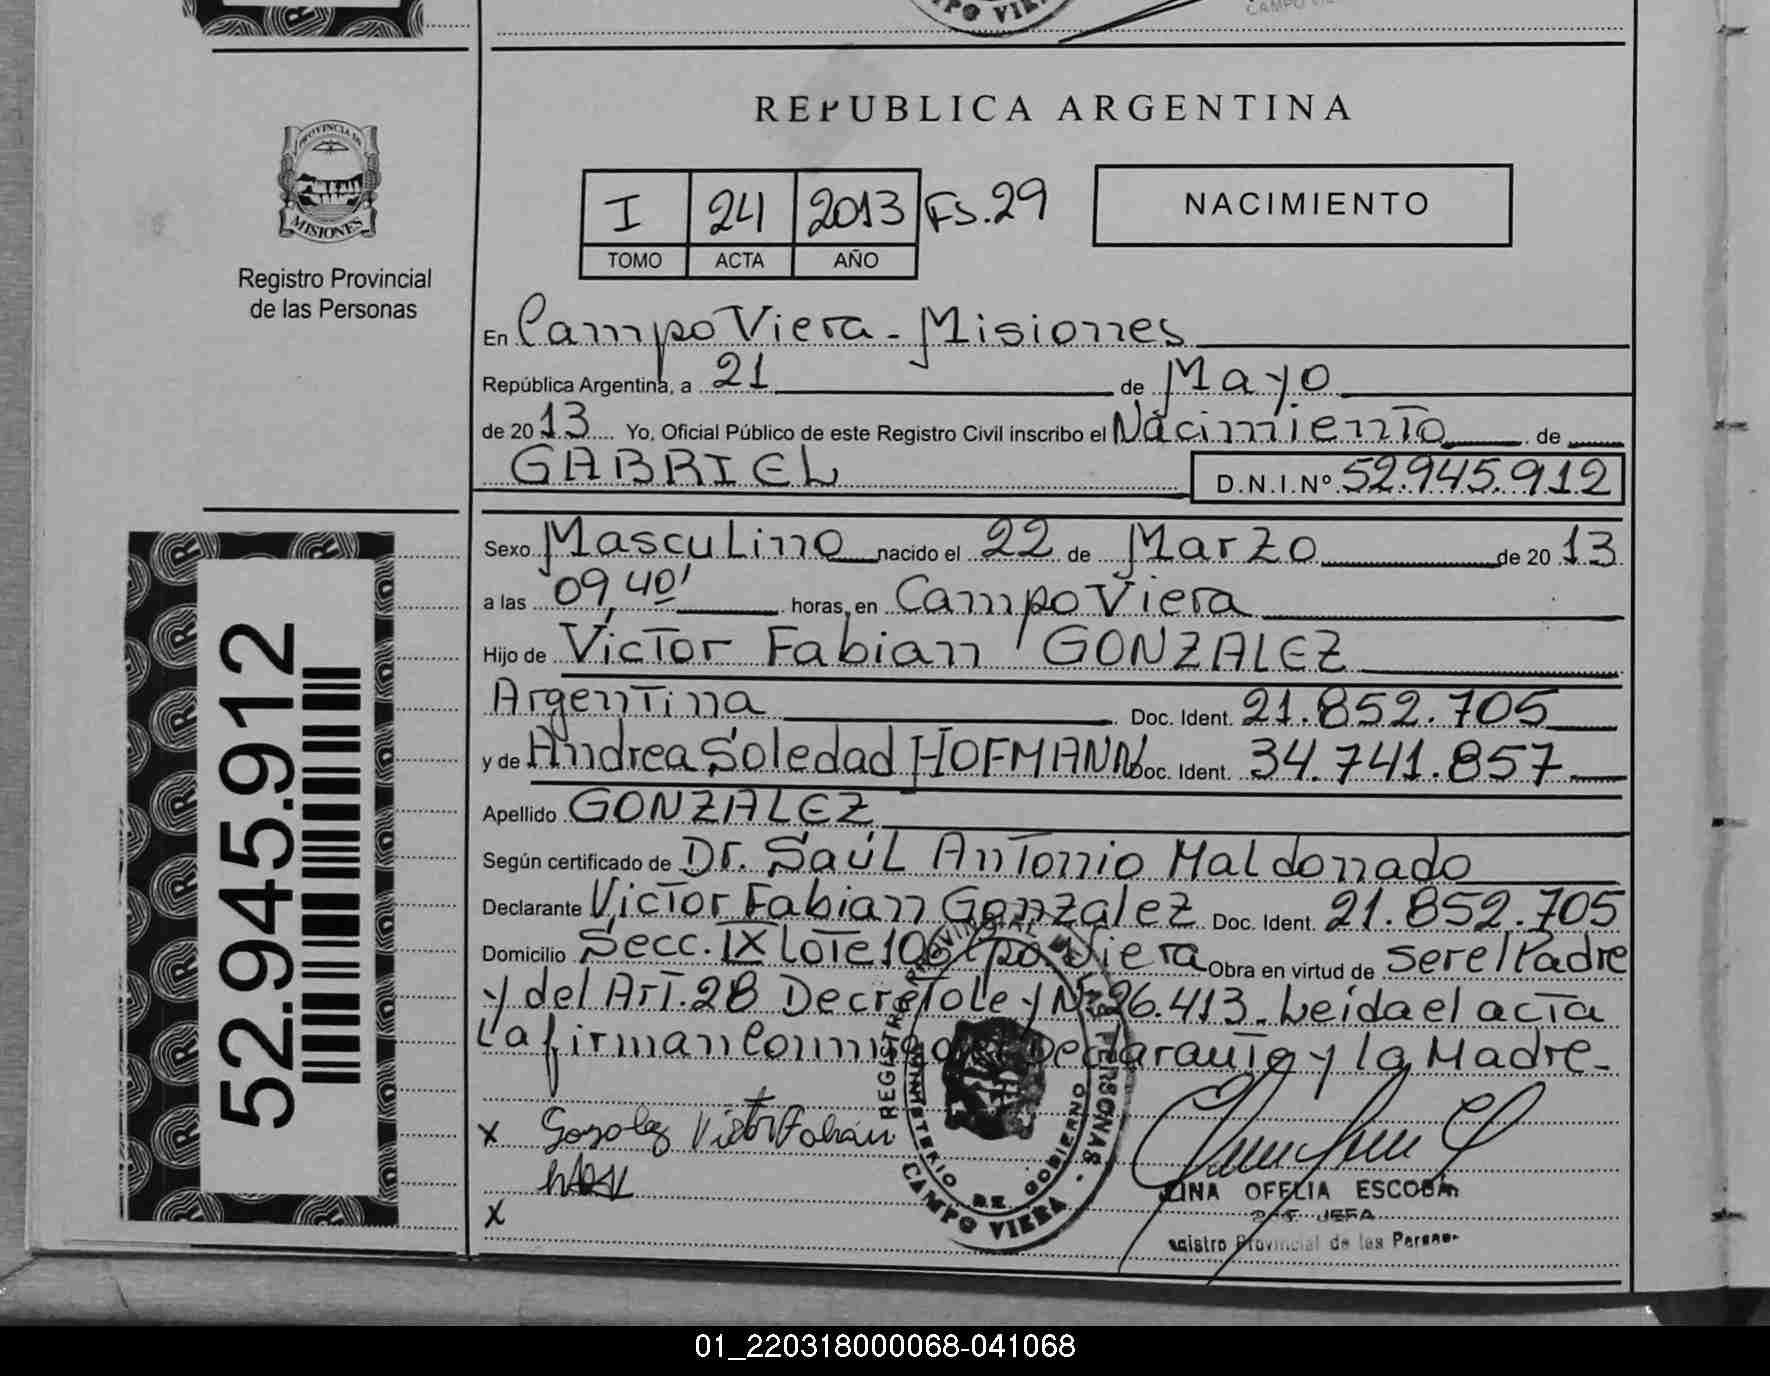 CAMPO VIERA
REPUBLICA ARGENTINA
PROVINCIA DE
MISIONES
Registro Provincial
de las Personas
I 24 2013 Fs.29
TOMO ACTA AÑO
NACIMIENTO
En Campo Viera - Misiones
República Argentina, a 21 de Mayo
de 2013 Yo, Oficial Público de este Registro Civil inscribo el Nacimiento de
GABRIEL D.N.I.Nº 52.945.912
Sexo Masculino nacido el 22 de Marzo de 2013
a las 09,40' horas, en Campo Viera
Hijo de Victor Fabian GONZALEZ
Argentina Doc. Ident. 21.852.705
y de Andrea Soledad HOFMANN Doc. Ident. 34.741.857
Apellido GONZALEZ
Según certificado de Dr. Saúl Antonio Maldonado
Declarante Victor Fabian Gonzalez Doc. Ident. 21.852.705
Domicilio Secc. IX Lote 106 Cpo Viera Obra en virtud de ser el Padre
y del Art. 28 Decreto Ley Nº 26.413. Leída el acta
La firman Conmigo el Declarante y la Madre.
x Gonzalez Victor Fabián
x
REGISTRO PROVINCIAL DE LAS PERSONAS
MINISTERIO DE GOBIERNO
CAMPO VIERA
LINA OFELIA ESCOBAR
JEFA
Registro Provincial de las Personas
52.945.912
01_220318000068-041068